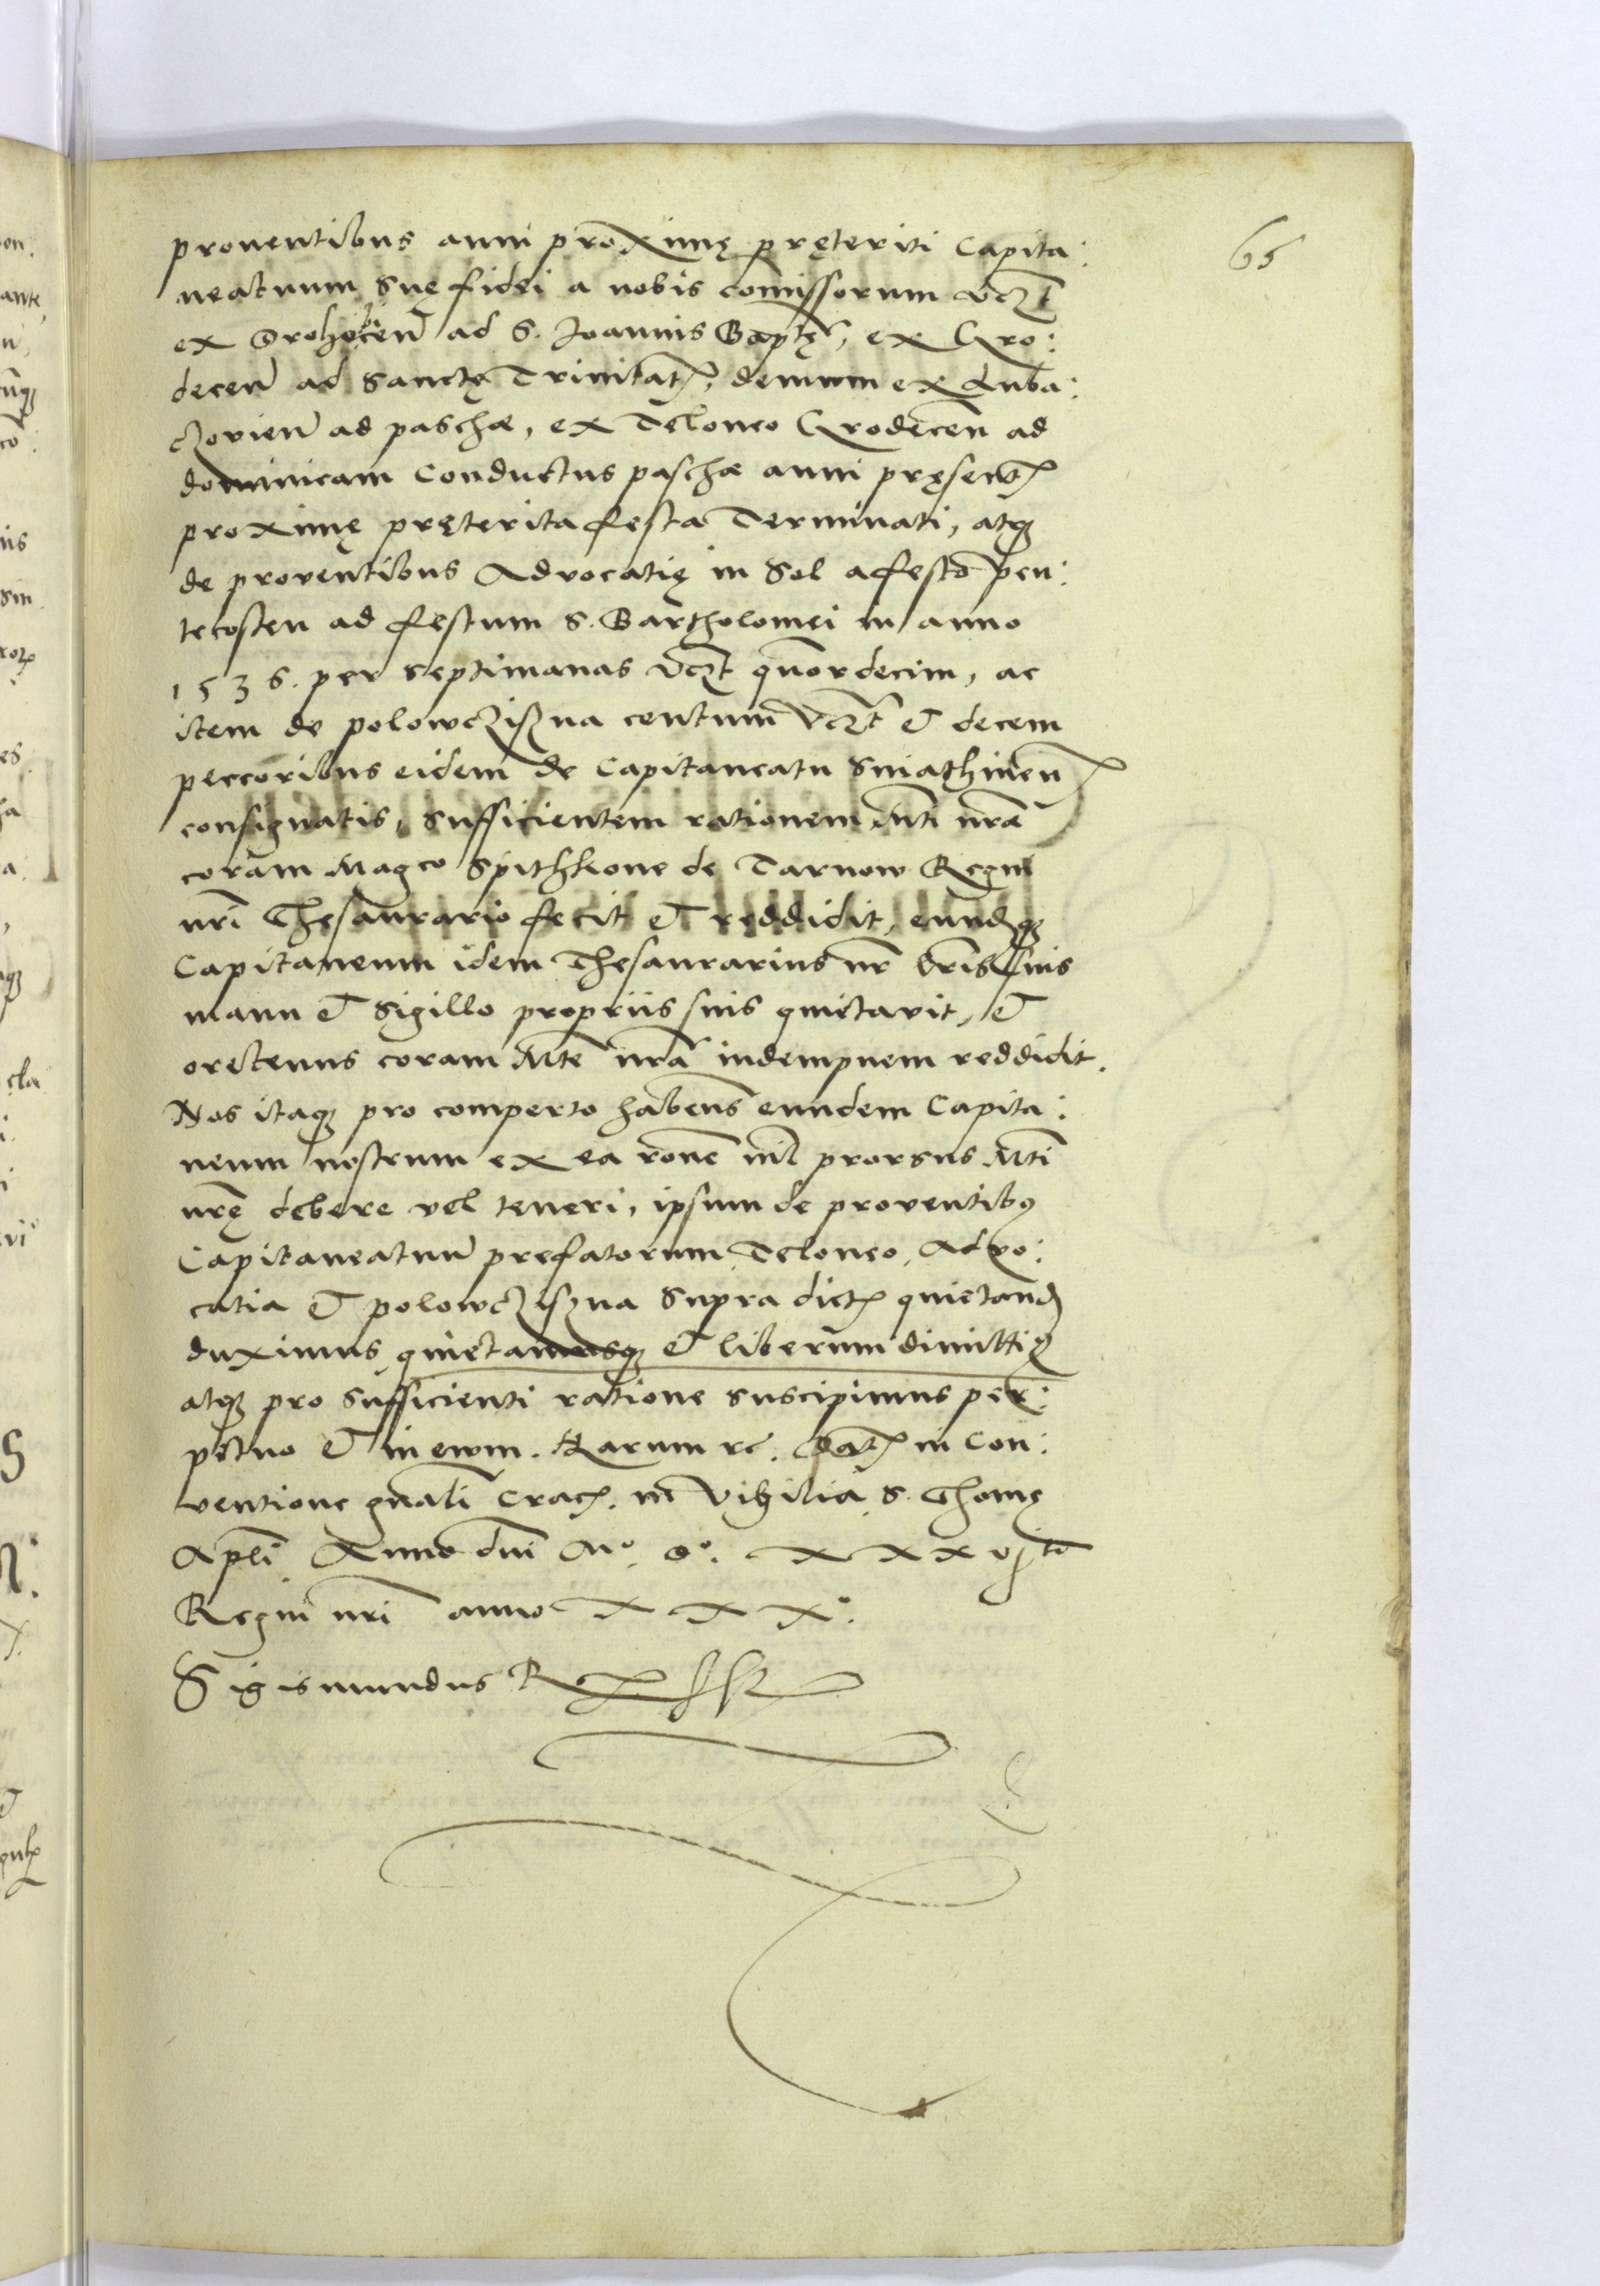 65
proventibus anni proximę pręteriti Capita:
neatuum suę fidei a nobis comissorum vczt
ex Drohobicen ad S. Joannis Baptę, ex Gro:
decen ad Sanctę Trinitatis, demum ex Luba:
czovien ad paschæ, ex Teloneo Grodecen ad
dominicam Conductus paschæ anni pręsentis
proximę pręterita festa Terminati, atqz
de proventibus Advocatię in Sol a festo pen:
tecosten ad festum S. Bartholomei in anno
1536. per septimanas vczt qnordecim, ac
item de polowcziszna centum vczt et decem
peccoribus eidem de Capitaneatu Sniathinen
consignatis, sufficientem rationem Mti nræ
coram Magco Spithkone de Tarnow Regni
nri Thesaurario fecit et reddidit, eundqz
Capitaneum idem Thesaurarius nr lris suis
manu et sigillo propriis suis quietavit, et
orectenus coram Mte nra indempnem reddidit.
Nos itaqz pro comperto habens eundem Capita:
neum nostrum ex ea rone nil prorsus Mti
nrę debere vel teneri, ipsum de proventibus
Capitaneatuu prefatorum Teloneo, Advo:
catia et polowcziszna supra dictis quietand
duximus quietamusqz et liberum dimittim
atqz pro sufficienti ratione suscipimus per:
petuo et in ewm. Harum rc. Datis in Con:
ventione gnali Crac. in Vigilia S. Thomę
Apli Anno dni Mo. do. xxxvjto
Regni nri anno xxxo.
Sigismundus Rex sst